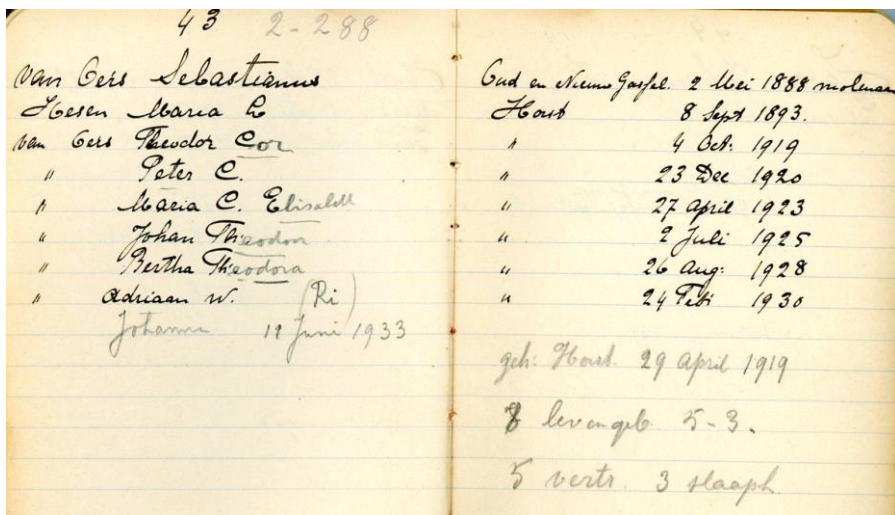 43 2-288
van Oers Sebastianus
Hesen Maria L
van Oers Theodor Cor
" Peter C.
" Maria C. Elisabeth
" Johan Theodoor
" Bertha Theodora
" Adriaan W. (Ri)
Johanna 11 Juni 1933
Oud en Nieuw Gastel. 2 Mei 1888 molenaar
Horst 8 Sept 1893.
" 4 Oct: 1919
" 23 Dec 1920
" 27 April 1923
" 2 Juli 1925
" 26 Aug: 1928
" 24 Febr 1930
geh: Horst. 29 April 1919
8 leven geb. 5-3.
5 vertr. 3 slaaph.